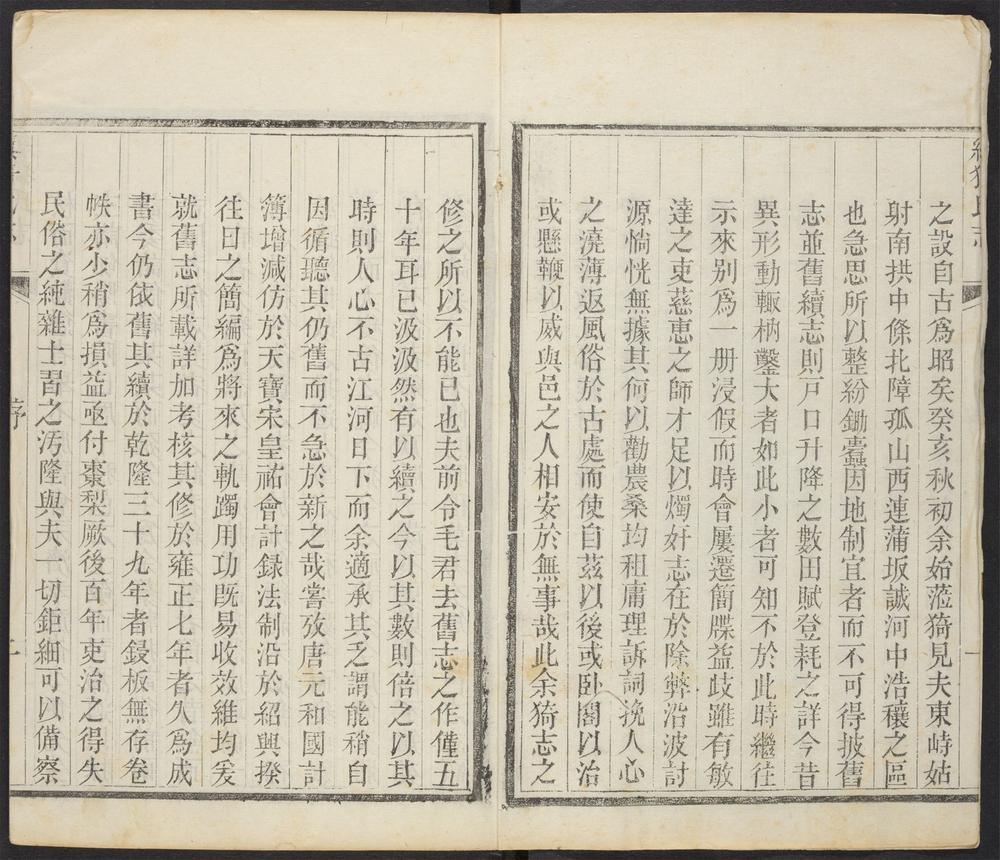 之設自古爲昭矣癸亥秋初余始蒞猗見夫東峙姑
射南拱中條北障孤山西連蒲坂誠河中浩穰之區
也急思所以整紛鋤蠹因地制宜者而不可得披舊
志並舊續志則戸口升降之數田賦登耗之詳今昔
異形動輙枘鑿大者如此小者可知不於此時繼往
示來别爲一册浸假而時會屢遷簡牒益歧雖有敏
達之吏慈惠之師才足以燭奸志在於除弊沿波討
源惝恍無據其何以勸農桑均租庸理訴詞挽人心
之澆薄返風俗於古處而使自茲以後或卧閣以治
或懸鞭以威與邑之人相安於無事哉此余猗志之
修之所以不能已也夫前令毛君去舊志之作僅五
十年耳已汲汲然有以續之今以其數則倍之以其
時則人心不古江河日下而余適承其乏謂能稍自
因循聽其仍舊而不急於新之哉嘗攷唐元和國計
簿增減仿於天寶宋皇祐會計録法制沿於紹興揆
往日之簡編爲將來之軌躅用功旣易收效維均爰
就舊志所載詳加考核其修於雍正七年者久爲成
書今仍依舊其續於乾隆三十九年者鋟板無存卷
帙亦少稍爲損益亟付棗梨厥後百年吏治之得失
民俗之純雜士習之汚隆與夫一切鉅細可以備察
序